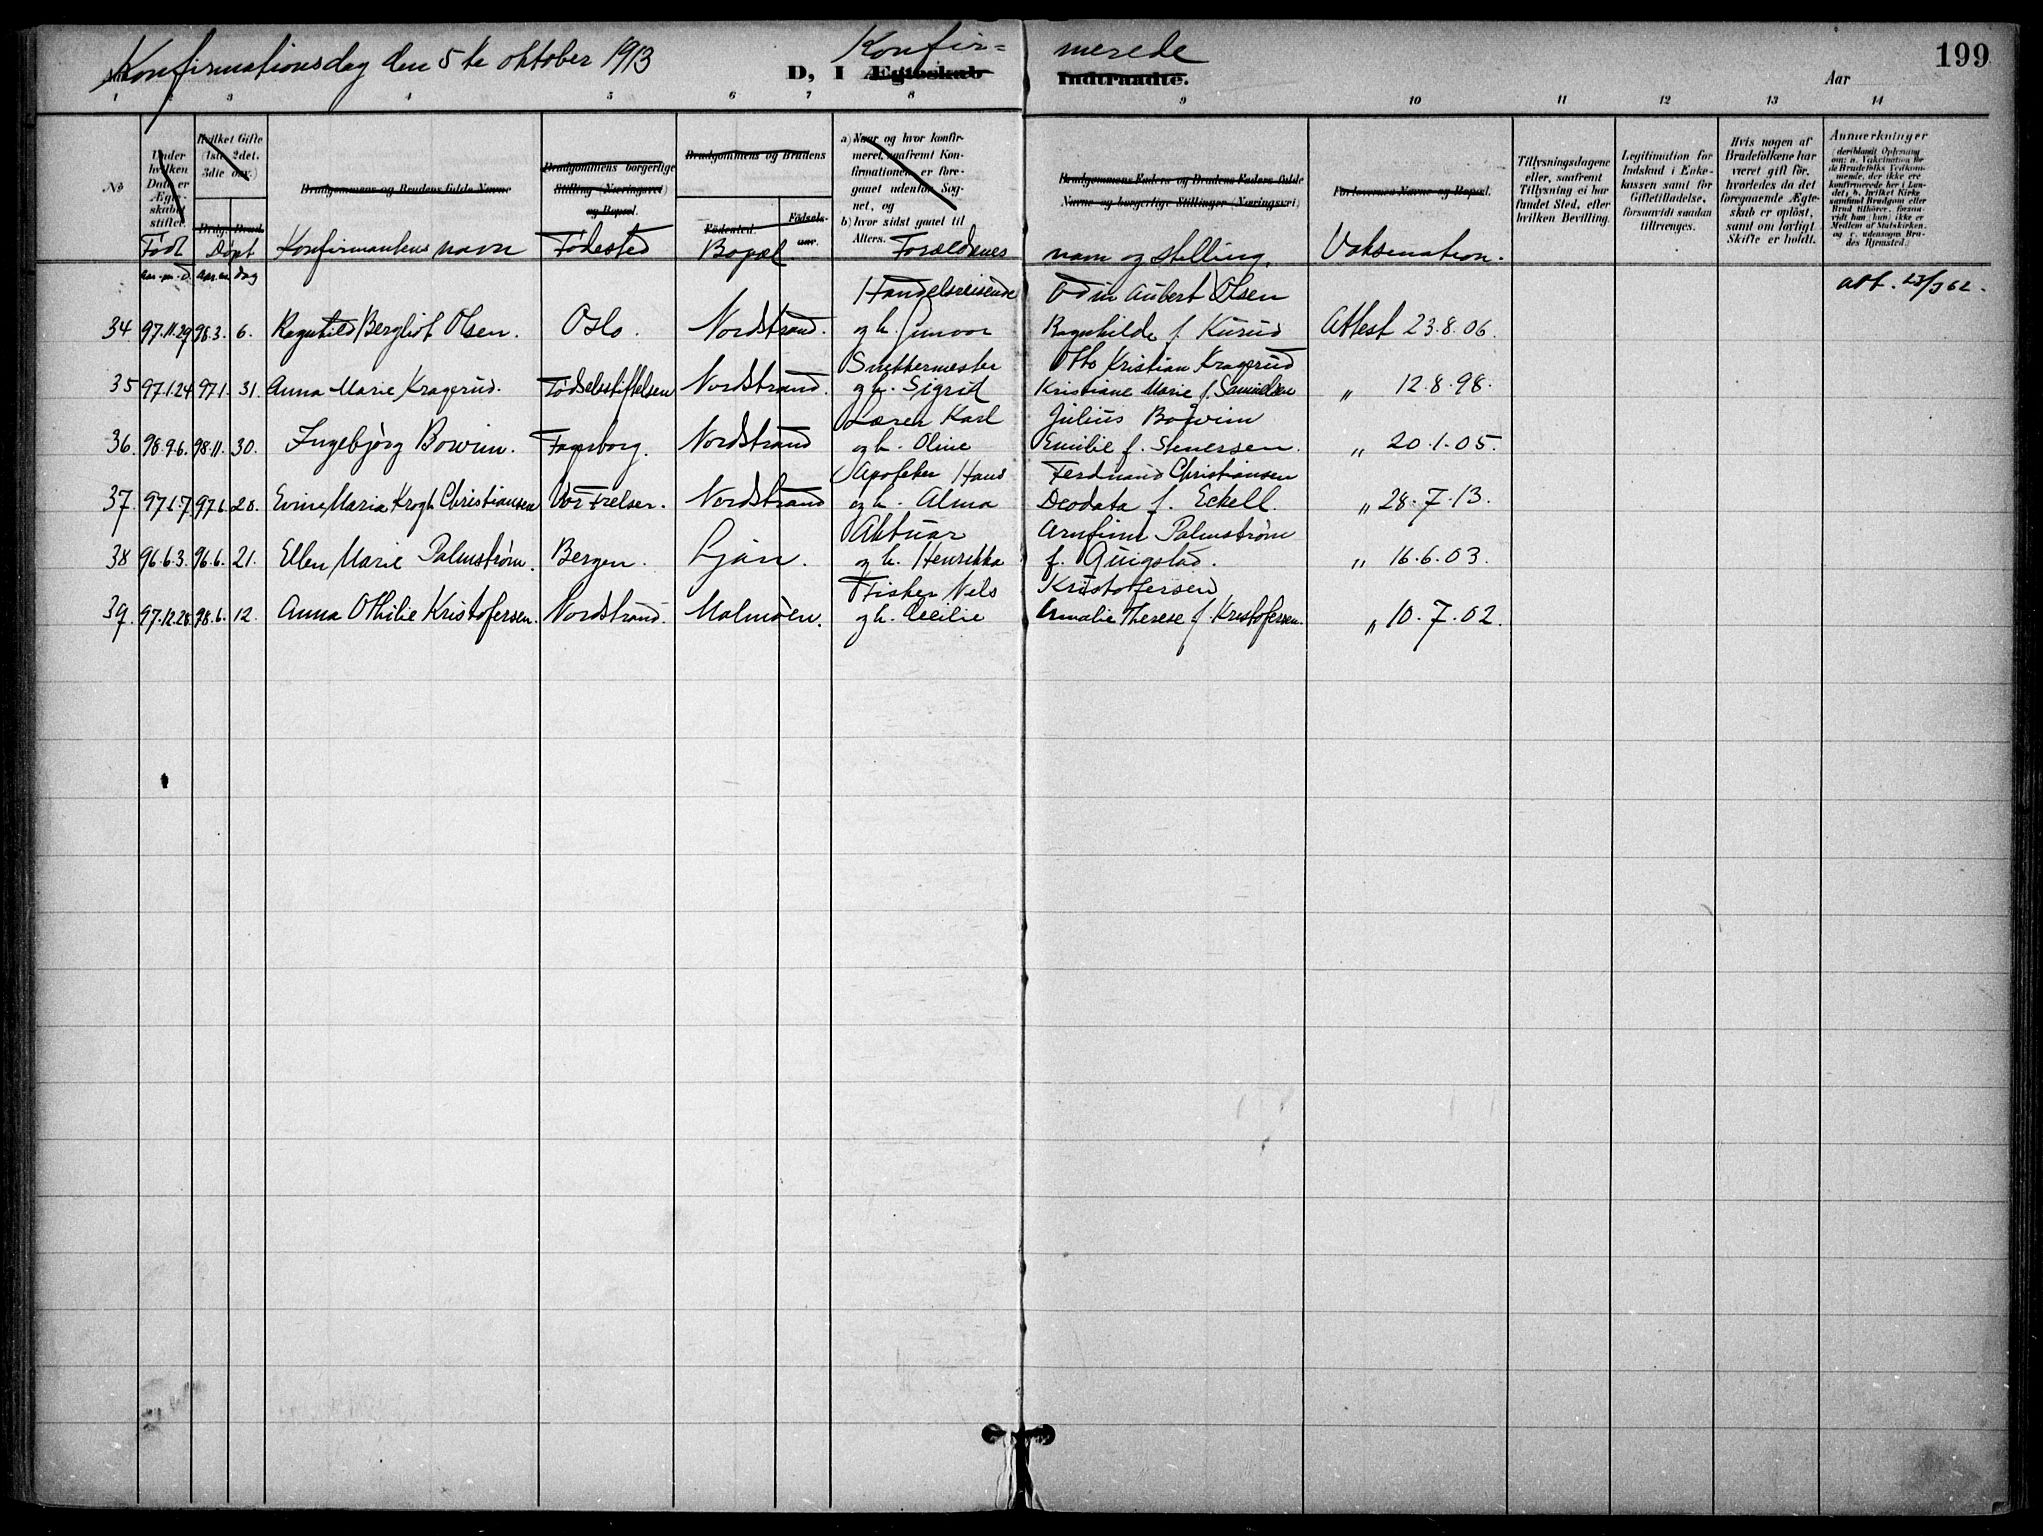 Konfirmationsdag den 5te oktober 1913 Konfir= merede 199
D, I Ægteskab Indtraadte. Aar
1 2 3 4 5 6 7 8 9 10 11 12 13 14
No Under hvilken Dato er Ægteskabet stiftet. Hvilket Gifte (1ste 2det. 3die osv.) Brudg. Brud. Brudgommens og Brudens fulde Navne Brudgommens borgerlige Stilling (Næringsvei) og Bopæl. Brudgommens og Brudens Födested. Födselsaar. a) Naar og hvor konfirmeret, saafremt Konfirmationen er foregaaet udenfor Sognet, og b) hvor sidst gaaet til Alters. Brudgommens Faders og Brudens Faders fulde Navne og borgerlige Stillinger (Næringsvei) Forlovernes Navne og Bopæl. Tillysningsdagene eller, saafremt Tillysning ei har fundet Sted, eller hvilken Bevilling. Legitimation for Indskud i Enkekassen samt for Giftetilladelse, forsaavidt saadan tiltrænges. Hvis nogen af Brudefolkene har været gift för, hvorledes da det foregaaende Ægteskab er oplöst, samt om lovligt Skifte er holdt. Anmærkninger (deriblandt Oplysning om: a. Vakcination for de Brudefolks Vedkommende, der ikke ere konfirmerede her i Landet, b. hvilket Kirkesamfund Brudgom eller Brud tilhörer, forsaavidt han (hun) ikke er Medlem af Statskirken, og c. udensogns Brudes Hjemsted.)
Født Døpt Konfirmantens navn Fødested Bopæl Forældrenes navn og stilling. Vaksination.
aar. m. d. aar. m. dag
Handelsreisende Odin Aubert Olsen att. 23/3 62.
34. 97.11.29 98.3. 6. Ragnhild Bergliot Olsen. Oslo. Nordstrand. og h. Gunvor Ragnhilde f. Kurud Attest 23.8.06.
Snekkermester Otto Kristian Kragerud
35 97.1.24 97.1. 31. Anna Marie Kragerud. Fødselsstiftelsen Nordstrand. og h. Sigrid Kristiane Marie f. Samuelsen „ 12.8.98.
Lærer Karl Julius Bowim
36. 98.9.6. 98.11. 30. Ingebjørg Bowim. Fagerborg. Nordstrand og h. Oline Emilie f. Stenersen. „ 20.1.05.
Apoteker Hans Ferdinand Christiansen
37. 97.1.7. 97.6. 20. Maria Krogh Christiansen Vor Frelser. Nordstrand og h. Alma Deodata f. Eckell. „ 28.7.13.
Aktuar Arnfinn Palmstrøm
38 96.6.3. 96.6. 21. Ellen Marie Palmstrøm. Bergen. Ljan. og h. Henrikka f. Quigstad. „ 16.6.03.
Fisker Nils Kristoffersen
39. 97.12.28. 98.6. 12. Anna Othilie Kristofersen. Nordstrand. Malmøen. og h. Cecilie Amalie Therese f. Kristofersen. „ 10.7.02.